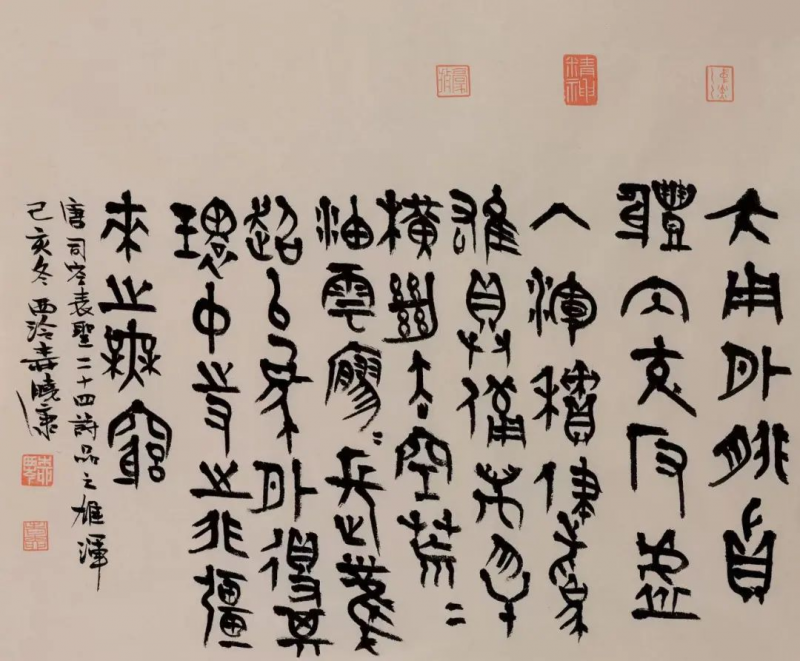 大用外腓真
體內充反虛
入渾積健為
雄具備萬物
橫絕太空荒〻
油雲寥〻長風
超以象外得其
環中持之非彊
來之無窮
唐司空表聖二十四詩品之雄渾
己亥冬西泠曉康
精神